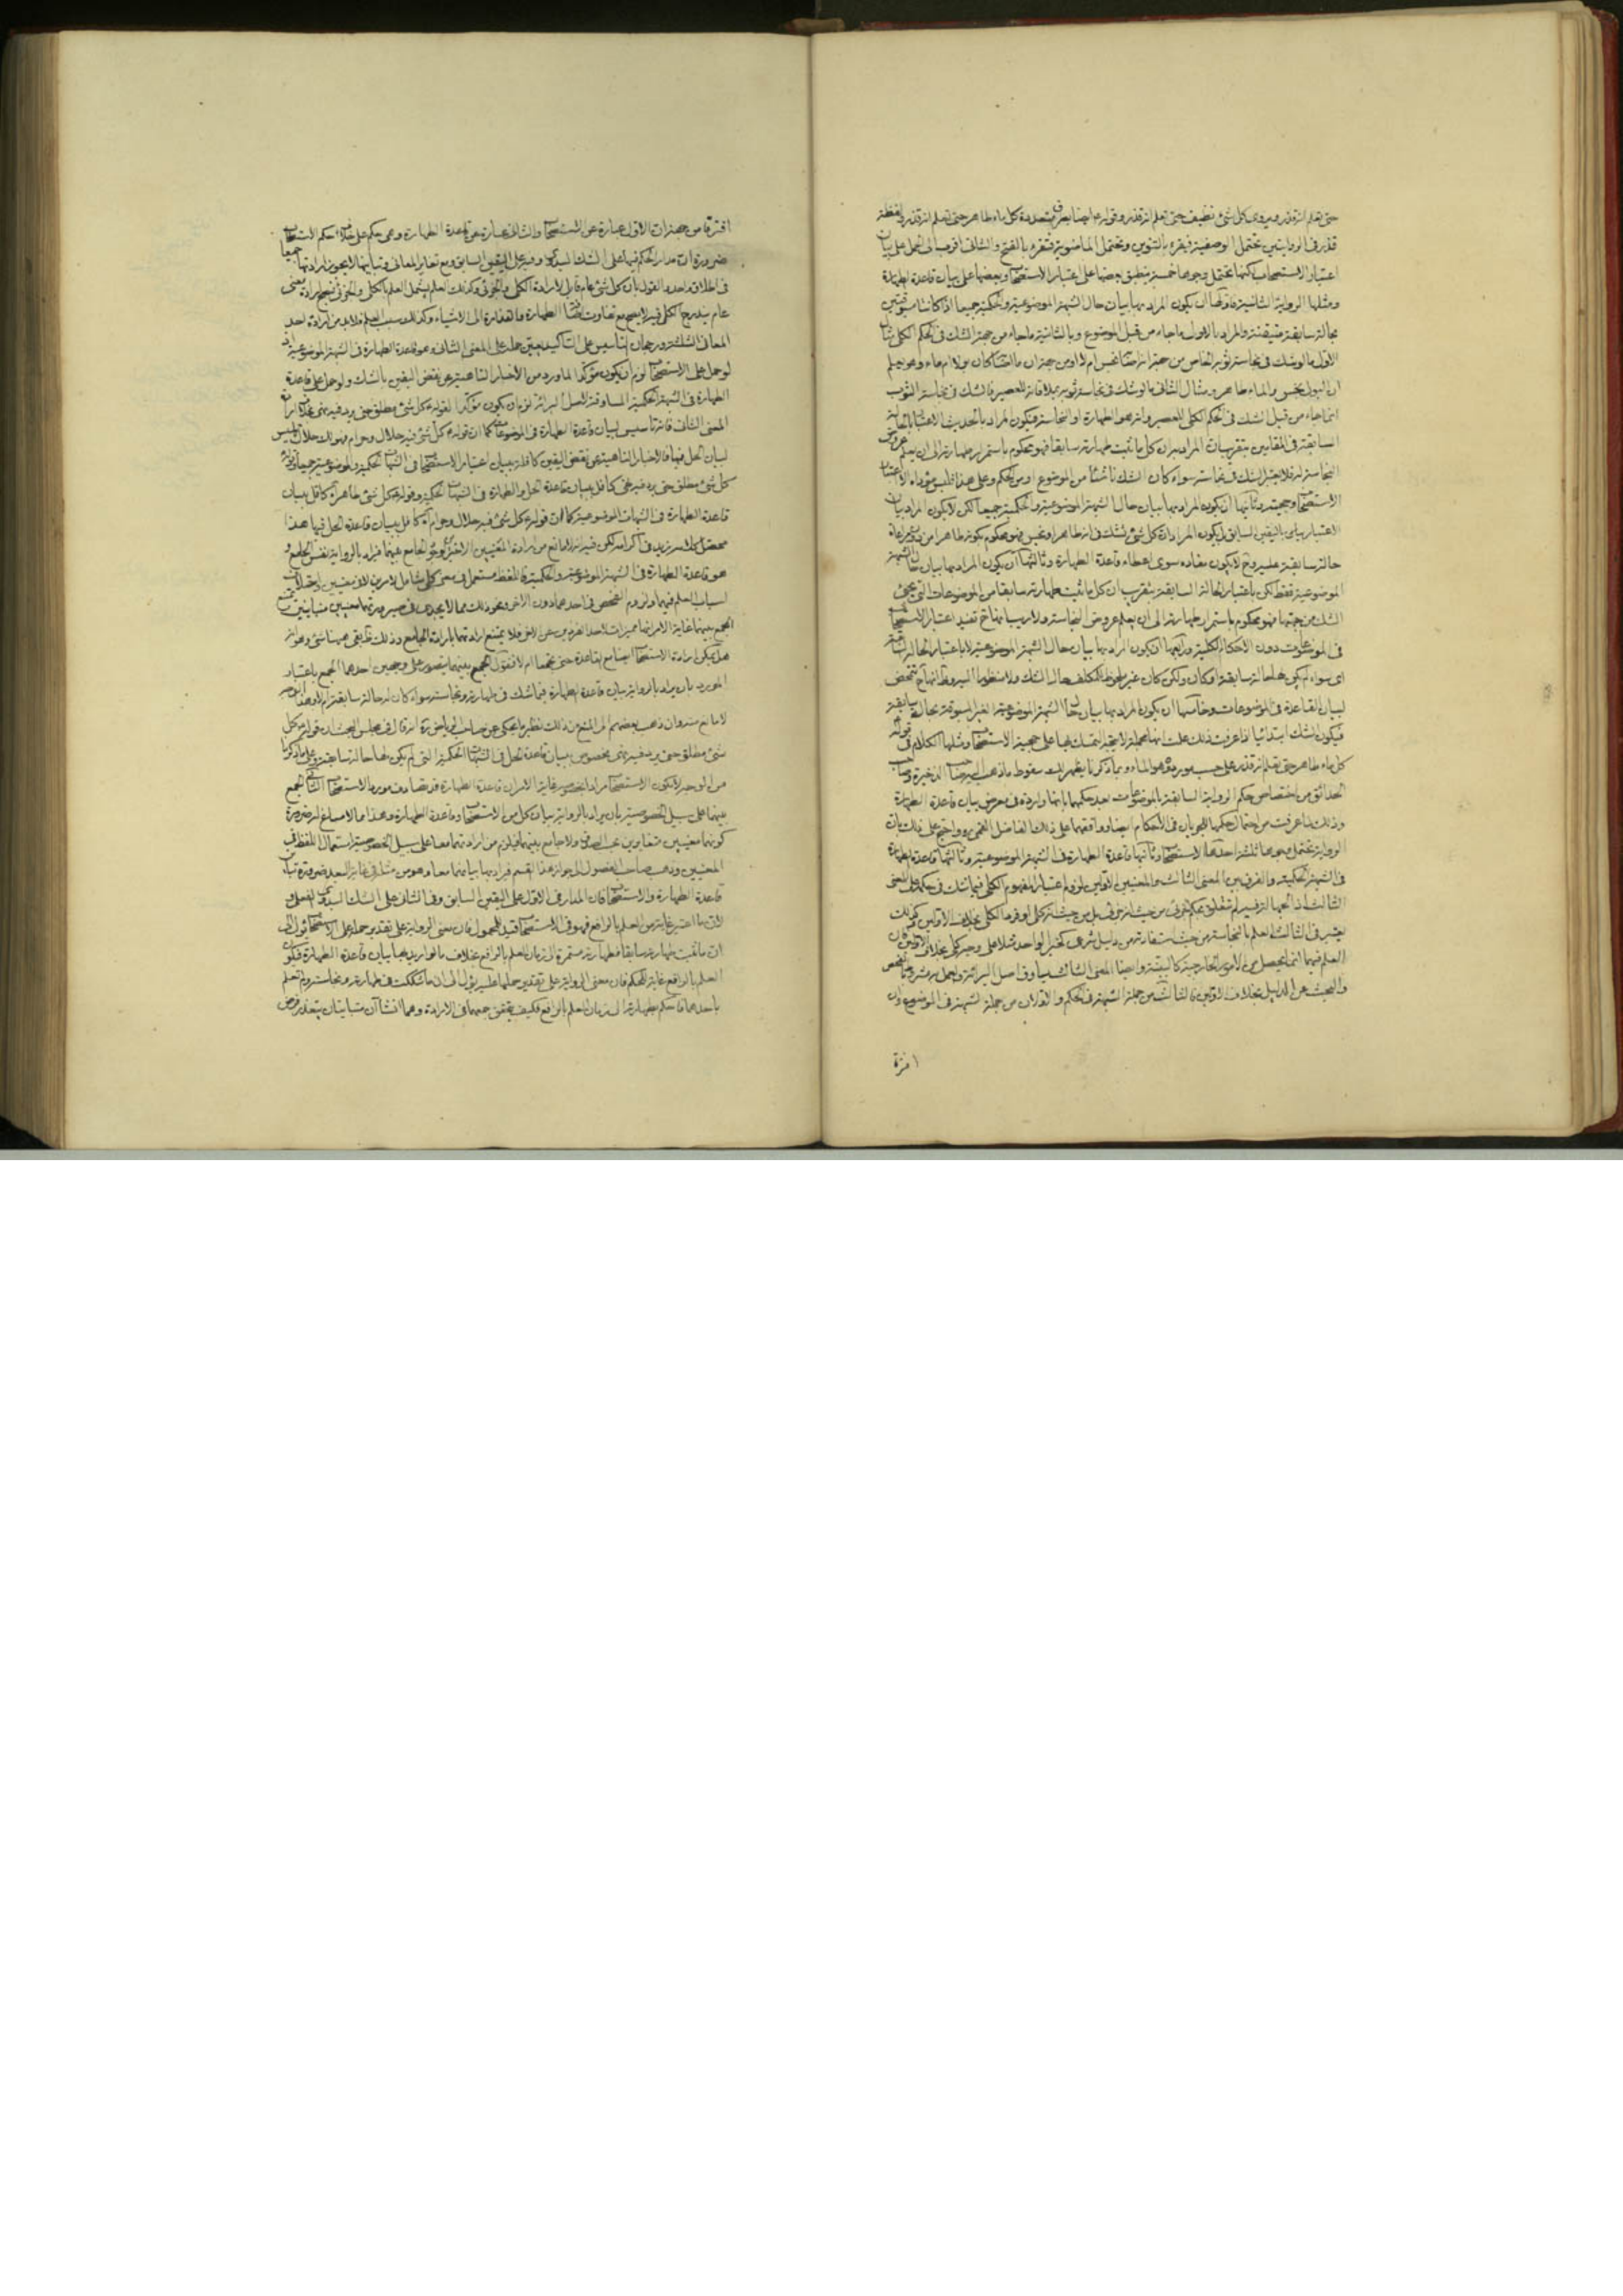 حتى تعلم انه قذر ويروى كل شئ نظيف حتى تعلم انه قذر وقوله ايضا بطرق متعددة كل ماء طاهر حتى تعلم انه قذر ولفظة
قذر في الروايتين يحتمل الوصفية فيقرء بالتنوين ويحتمل الماضوية فيقرء بالفتح والثاني اقرب الى الحمل على بيان
اعتبار الاستصحاب لكنها يحتمل وجوها خمسة ينطبق بعضها على اعتبار الاستصحاب وبعضها على بيان قاعدة الطهارة
ومثلها الرواية الثانية فاولها ان يكون المراد بها بيان حال الشبهة الموضوعية والحكمية جميعا اذا كانتا مسبوقتين
بحالة سابقة متيقنة والمراد بالاول ما جاء من قبل الموضوع وبالثانية ما جاء من جهة الشك في الحكم الكلي مثال
الاول ما لو شك في نجاسة ثوبه الخاص من جهة انه نجس ام لا او من جهة ان كان بولا ام ماء وهو يعلم
ان البول نجس والماء طاهر ومثال الثاني ما لو شك في نجاسة ثوبه بملاقاته للعصير فالشك في نجاسة الثوب
انما جاء من قبل الشك في الحكم الكلي للعصير وانه هو الطهارة او النجاسة فيكون المراد بالحديث الاعتبار بالحالة
السابقة في المقامين بتقريب ان المراد به ان كل ما ثبت طهارته سابقا فهو محكوم باستمرار طهارته الى ان يعلم عروض
النجاسة له فلا يعتبر الشك في نجاسته سواء كان الشك ناشئا من الموضوع او من الحكم وعلى هذا فليس مؤداه الا اعتبار
الاستصحاب وحجيته وثانيها ان يكون المراد بها بيان حال الشبهة الموضوعية والحكمية جميعا لكن لا يكون المراد بيان
الاعتبار باليقين السابق بل يكون المراد ان كل شئ شك في انه طاهر او نجس فهو محكوم بكونه طاهرا من دون مراعاة
حالة سابقة عليه وح لا يكون مفاده سوى اعطاء قاعدة الطهارة وثالثها ان يكون المراد بها بيان حال الشبهة
الموضوعية فقط لكن باعتبار الحالة السابقة بتقريب ان كل ما ثبت طهارته سابقا من الموضوعات التي يجئ
الشك من جهتها فهو محكوم باستمرار طهارته الى ان يعلم عروض النجاسة ولا ريب انها ح تفيد اعتبار الاستصحاب
في الموضوعات دون الاحكام الكلية ورابعها ان يكون المراد بها بيان حال الشبهة الموضوعية لا باعتبار الحالة السابقة
اي سواء لم يكن لها حالة سابقة او كان ولكن كان غير ملحوظ للمكلف حال الشك ولا منظورا اليه فانها ح تتمحض
لبيان القاعدة في الموضوعات وخامسها ان يكون المراد بها بيان حال الشبهة الموضوعية الغير المسبوقة بحالة سابقة
فيكون الشك ابتدائيا اذا عرفت ذلك علمت انها مجملة لا يتجه التمسك بها على حجية الاستصحاب ومثلها الكلام في قوله
كل ماء طاهر حتى تعلم انه قذر على حسب مورده وهو الماء وبما ذكرنا يظهر لك سقوط ما ذهب اليه صاحب الذخيرة وصاحب
الحدائق من اختصاص حكم الرواية السابقة بالموضوعات بعد حكمهما بانها واردة في معرض بيان قاعدة الطهارة
وذلك لما عرفت من احتمال حكمها للجريان في الاحكام ايضا ووافقهما على ذلك الفاضل القمي ره واحتج على ذلك بان
الرواية تحتمل وجوها ثلثة احدها الاستصحاب وثانيها قاعدة الطهارة في الشبهة الموضوعية وثالثها قاعدة الطهارة
في الشبهة الحكمية والفرق بين المعنى الثالث والمعنيين الاولين لزوم اعتبار المفهوم الكلي فيما شك في حكمه على المعنى
الثالث اذ الجهالة فيه لم تتعلق بحكم الجزئي من حيث انه جزئي بل من حيث انه كلي او فرد الكلي بخلاف الاولين وكذلك
يعتبر في الثالث العلم بالنجاسة من حيث استفادته من دليل شرعي كخبر الواحد مثلا على وجه كلي بخلاف الاولين فان
العلم فيهما انما يحصل من الامور الخارجية كالبينة وايضا المعنى الثالث يساوق اصل البرائة والعمل به مشروط بالفحص
والبحث عن الدليل بخلاف الاولين فالثالث من جملة الشبهة في الحكم والاولان من جملة الشبهة في الموضوع وان
افترقا
افترقا من جهة ان الاول عبارة عن الاستصحاب والثاني عبارة عن قاعدة الطهارة وهي حكم على خلاف حكم الاستصحاب
ضرورة ان مدار الحكم فيها على الشك المبدئي وفيه على اليقين السابق ومع تغاير المعاني وتباينها لا يجوز ارادتها جميعا
في اطلاق واحد والقول بان كل شئ عام قابل لارادة الكلي والجزئي وكذلك العلم يشمل العلم بالكلي والجزئي فيصح ارادة معنى
عام يندرج الكل فيه لا يصح مع تفاوت الطهارة والقذارة الى الاشياء وكذلك سبب العلم فلابد من ارادة احد
المعاني الثلثة ورجحان التاسيس على التاكيد يعين حمله على المعنى الثاني وهو قاعدة الطهارة في الشبهة الموضوعية اذ
لو حمل على الاستصحاب لزم ان يكون مؤكدا لما ورد من الاخبار الناهية عن نقض اليقين بالشك ولو حمل على قاعدة
الطهارة في الشبهة الحكمية المساوقة لاصل البرائة لزم ان يكون مؤكدا لقوله كل شئ مطلق حتى يرد فيه نهي بخلاف ارادة
المعنى الثاني فانه تاسيس لبيان قاعدة الطهارة في الموضوعات كما ان قوله كل شئ فيه حلال وحرام فهو لك حلال تاسيس
لبيان الحل فيها فالاخبار الناهية عن نقض اليقين كافلة ببيان اعتبار الاستصحاب في الشبهات الحكمية والموضوعية جميعا وقوله
كل شئ مطلق حتى يرد فيه نهي كافل ببيان قاعدة الحل والطهارة في الشبهات الحكمية وقوله كل شئ طاهر آه كافل ببيان
قاعدة الطهارة في الشبهات الموضوعية كما ان قوله كل شئ فيه حلال وحرام آه كافل ببيان قاعدة الحل فيها هذا
محصل كلامه زيد في اكرامه لكن فيه انه لا مانع من ارادة المعنيين الاخيرين لوجود الجامع بينهما فيراد بالرواية نفس الجامع و
هو قاعدة الطهارة في الشبهة الموضوعية والحكمية فاللفظ مستعمل في معنى كلي شامل للامرين لا في معنيين واختلاف
اسباب العلم فيهما ولزوم الفحص في احدهما دون الاخر ونحو ذلك مما لا يجدي في صيرورتهما معنيين متباينين يمتنع
الجمع بينهما غاية الامر انها مميزات لاحد الفردين عن الاخر فلا يمتنع ارادتهما بارادة الجامع وذلك بقي هيهنا شئ وهو انه
هل يمكن ارادة الاستصحاب ايضا مع القاعدة حتى يجتمعا ام لا فنقول الجمع بينهما يتصور على وجهين احدهما الجمع باعتبار
المورد بان يراد بالرواية بيان قاعدة الطهارة فيما شك في طهارته ونجاسته سواء كان له حالة سابقة ام لا وهذا الوجه
لا مانع منه وان ذهب بعضهم الى المنع من ذلك نظير ما يحكى عن صاحب الرياض ره انه قال في مجلس البحث ان قوله كل
شئ مطلق حتى يرد فيه نهي مخصوص ببيان قاعدة الحل في الشبهات الحكمية التي لم يكن لها حالة سابقة وعلى ما ذكرنا
من الوجه لا يكون الاستصحاب مرادا بخصوصه غاية الامر ان قاعدة الطهارة قد يصادف موردها الاستصحاب الثاني الجمع
بينهما على سبيل الخصوصية بان يراد بالرواية بيان كل من الاستصحاب وقاعدة الطهارة وهذا مما لا مساغ له ضرورة
كونهما معنيين متغايرين غير المصداق ولا جامع بينهما فيلزم من ارادتهما معا على سبيل الخصوصية استعمال اللفظ في
المعنيين وذهب صاحب الفصول الى جواز هذا القسم فيراد بها بيانهما معا وهو من مثله في غاية البعد ضرورة تباين
قاعدة الطهارة والاستصحاب فان المدار في الاول على اليقين السابق وفي الثاني على الشك المبدئي الفعلي و
لان ما اعتبر غاية من العلم بالرافع فهو في الاستصحاب قيد للمحمول فان معنى الرواية على تقدير حملها على الاستصحاب يؤل الى
ان ما ثبت طهارته سابقا فطهارته مستمرة الى زمان العلم بالرافع بخلاف ما لو اريد بها بيان قاعدة الطهارة فيكون
العلم بالرافع غاية للحكم فان معنى الرواية على تقدير حملها عليه يؤل الى ان ما شككت في طهارته ونجاسته ولم تعلم
باحدهما فاحكم بطهارته الى زمان العلم بالرافع فكيف يتحقق جمعهما في الارادة وهما انشاآن متباينان يتعذر فرض